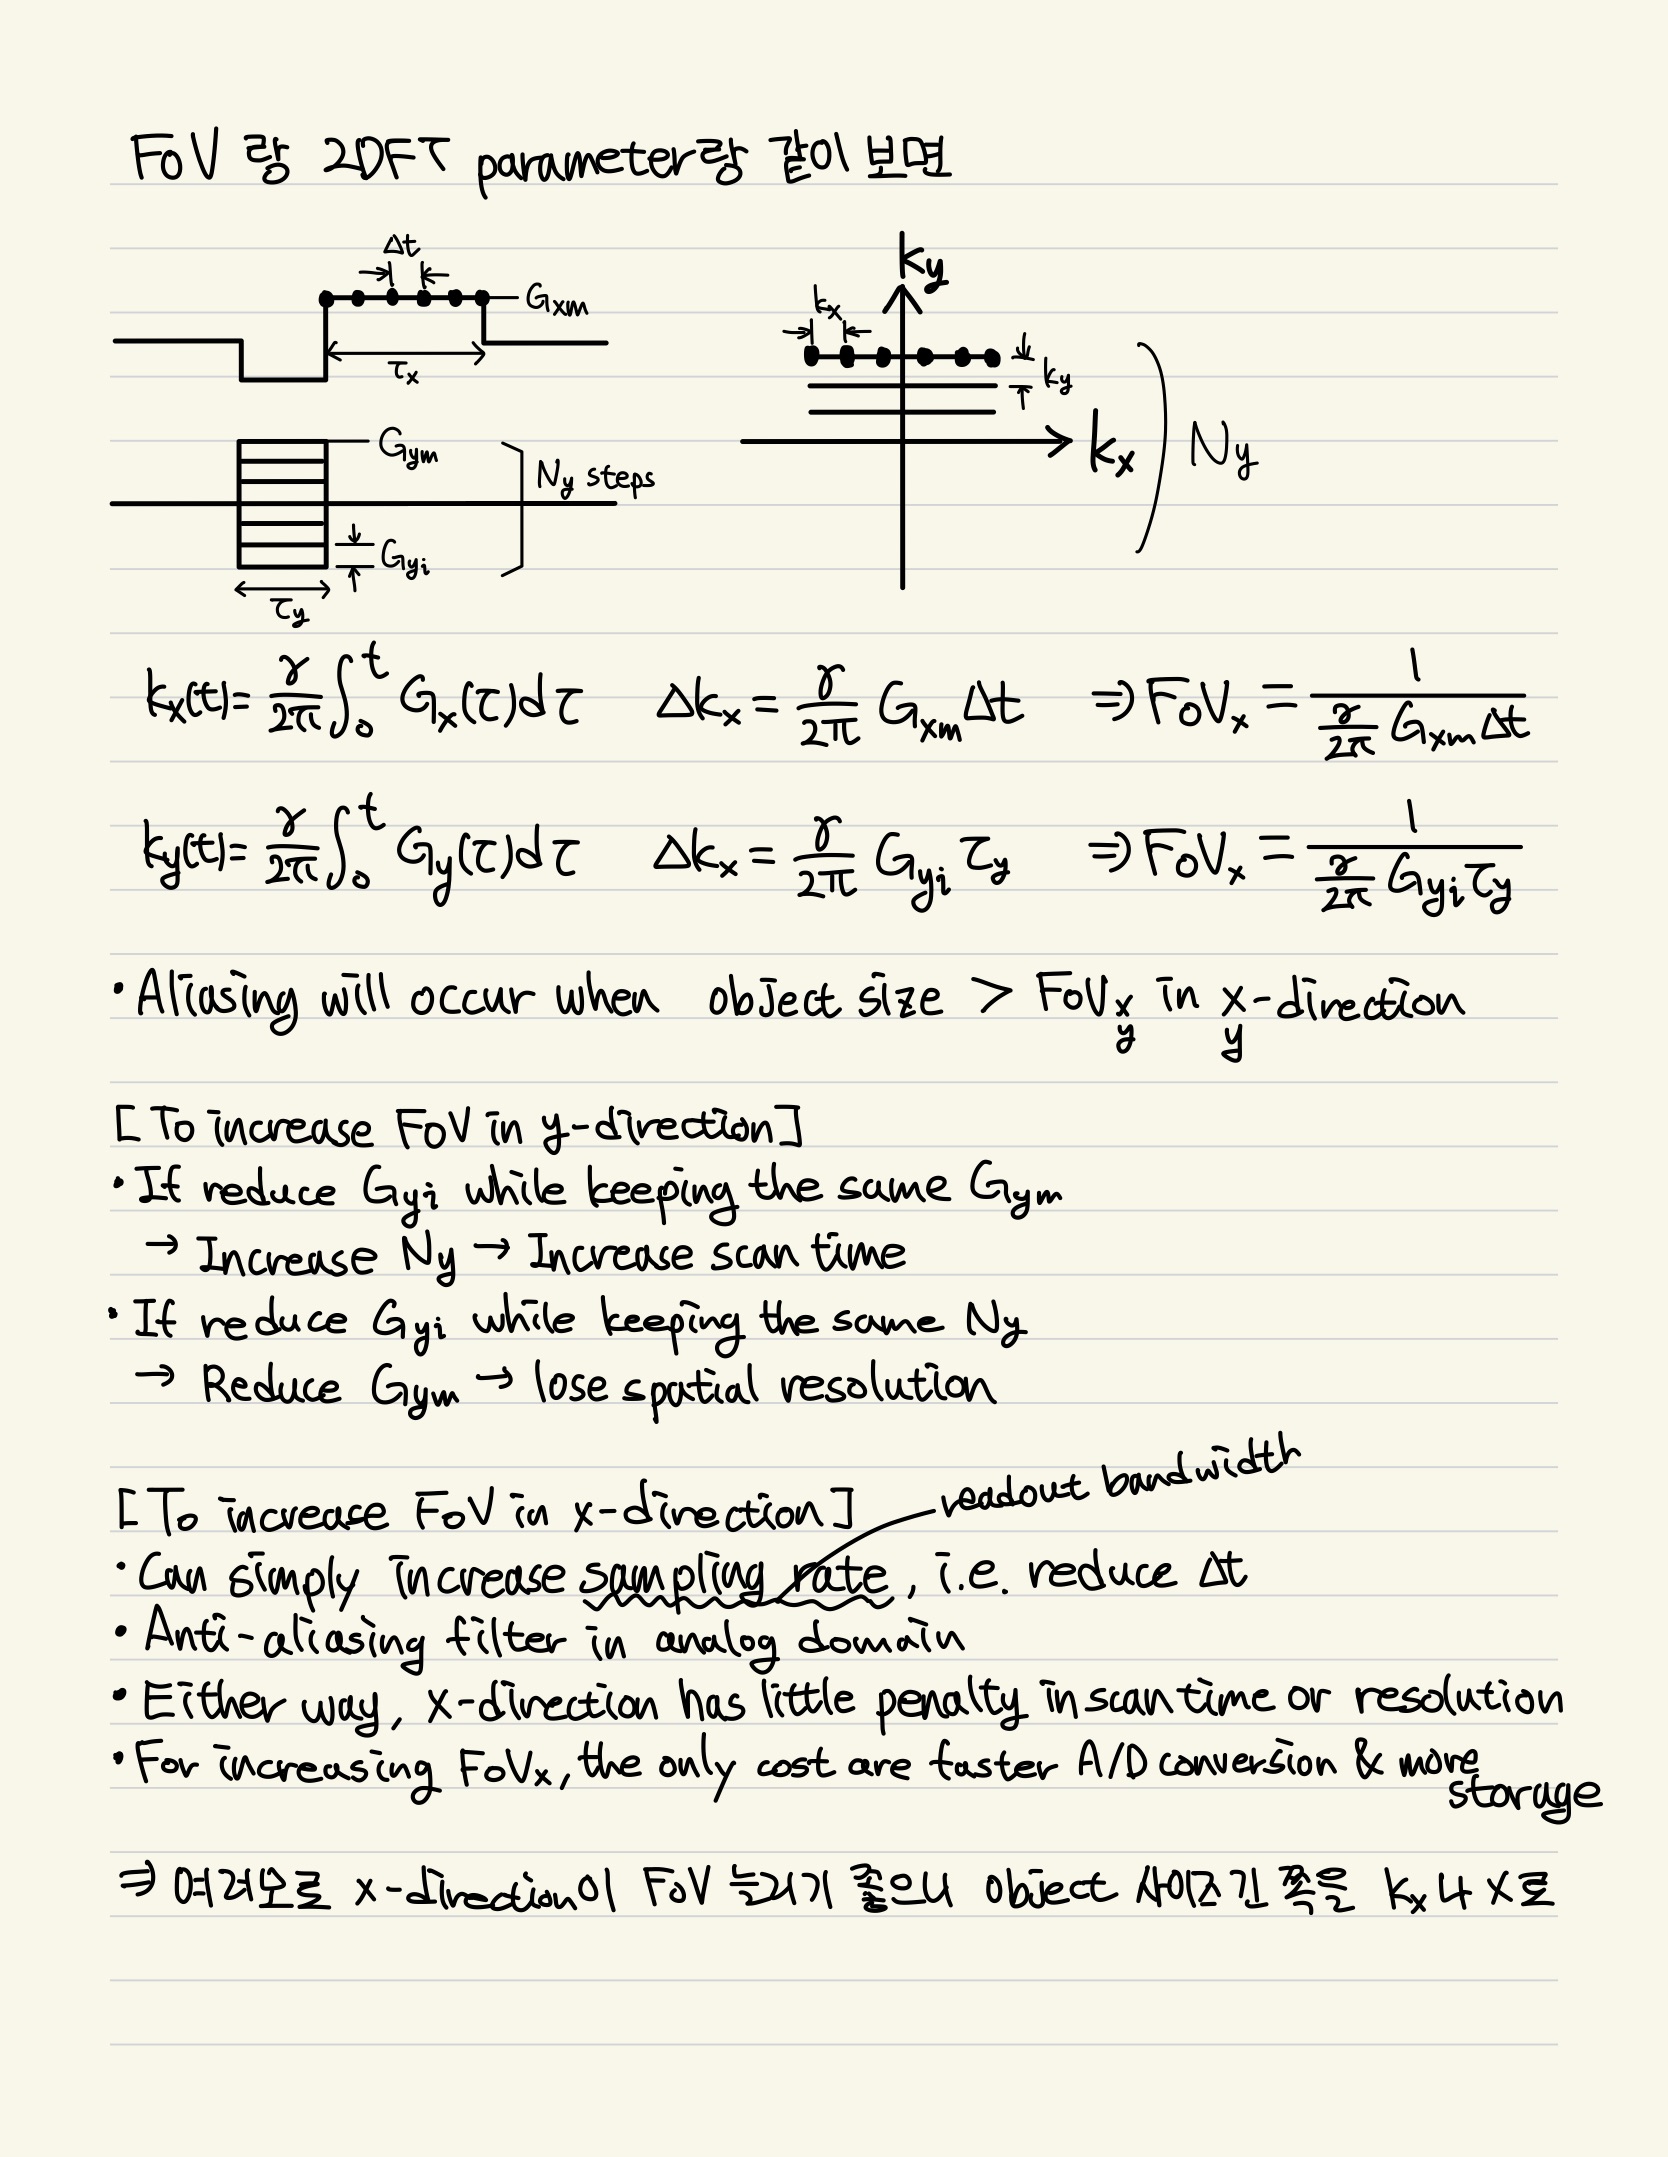 FoV 랑 2DFT parameter랑 같이 보면
Δt
G_xm
τ_x
G_ym
N_y steps
G_yi
τ_y
k_y
k_x
k_y
k_x
N_y
k_x(t) = γ/2π ∫_0^t G_x(τ)dτ Δk_x = γ/2π G_xm Δt ⇒ FoV_x = 1 / (γ/2π G_xm Δt)
k_y(t) = γ/2π ∫_0^t G_y(τ)dτ Δk_x = γ/2π G_yi τ_y ⇒ FoV_x = 1 / (γ/2π G_yi τ_y)
• Aliasing will occur when object size > FoV_x in x-direction
y y
[To increase FoV in y-direction]
• If reduce G_yi while keeping the same G_ym
→ Increase N_y → Increase scan time
• If reduce G_yi while keeping the same N_y
→ Reduce G_ym → lose spatial resolution
readout bandwidth
[To increase FoV in x-direction]
• Can simply increase sampling rate, i.e. reduce Δt
• Anti-aliasing filter in analog domain
• Either way, x-direction has little penalty in scan time or resolution
• For increasing FoV_x, the only cost are faster A/D conversion & more
storage
⇒ 여러모로 x-direction이 FoV 늘리기 좋으니 object 사이즈 긴 쪽을 k_x나 x로